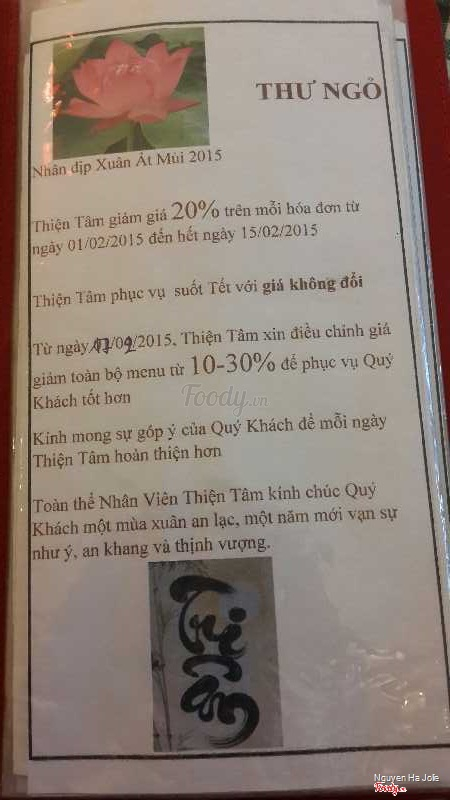 THƯ NGỎ
Nhân dịp Xuân Ất Mùi 2015
Thiện Tâm giảm giá 20% trên mỗi hóa đơn từ
ngày 01/02/2015 đến hết ngày 15/02/2015
Thiện Tâm phục vụ suốt Tết với giá không đổi
Từ ngày /2015, Thiện Tâm xin điều chỉnh giá
giảm toàn bộ menu từ 10-30% để phục vụ Quý
Khách tốt hơn
Foody.vn
Kính mong sự góp ý của Quý Khách để mỗi ngày
Thiện Tâm hoàn thiện hơn
Toàn thể Nhân Viên Thiện Tâm kính chúc Quý
Khách một mùa xuân an lạc, một năm mới vạn sự
như ý, an khang và thịnh vượng.
Nguyen Ha Jolie
Foody.vn